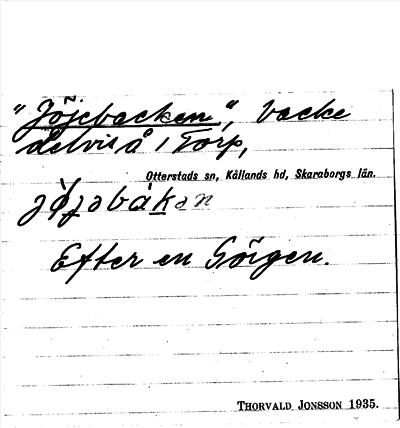 "Jöjebacken", backe
delvis å 1 Torp,
Otterstads sn, Kållands hd, Skaraborgs län.
Efter en Görgen.
THORVALD JONSSON 1935.